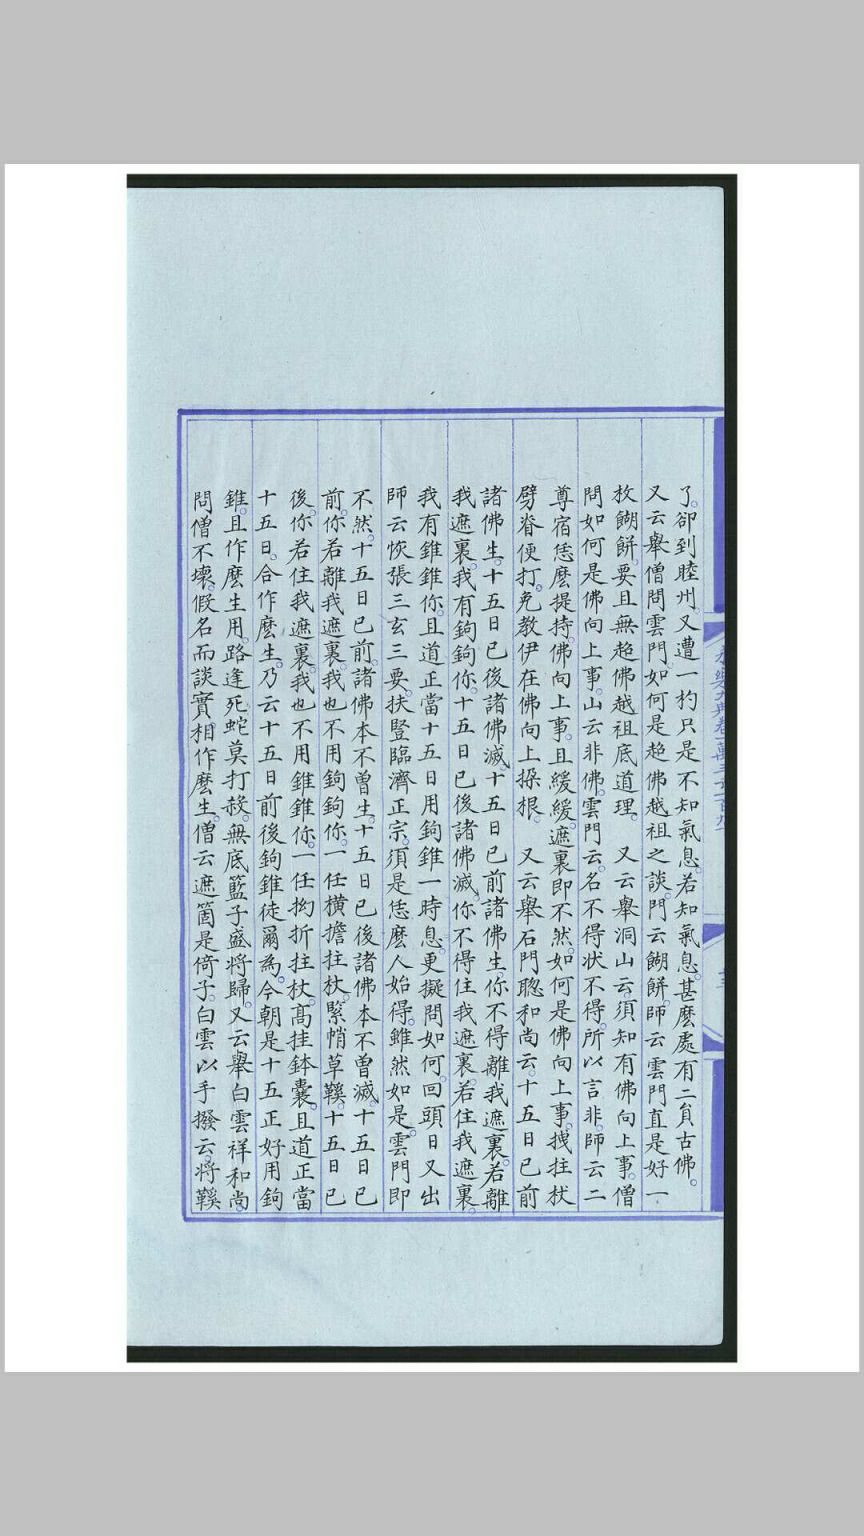 了。卻到睦州。又遭一杓只是不知氣息。若知氣息。甚麽處有二貟古佛。
又云舉僧問雲門。如何是趂佛越祖之談。門云餬餅。師云雲門直是好一
枚餬餅。要且無趂佛越祖底道理。　又云舉洞山云。須知有佛向上事。僧
問如何是佛向上事。山云非佛。雲門云。名不得狀不得。所以言非。師云二
尊宿恁麽提持。佛向上事。且緩緩。遮裏即不然。如何是佛向上事。拽拄杖
劈脊便打。免教伊在佛向上探根。　又云舉石門聦和尚云。十五日已前
諸佛生。十五日已後諸佛滅。十五日已前諸佛生。你不得離我遮裏。若離
我遮裏。我有鉤鉤你。十五日已後諸佛滅。你不得住我遮裏。若住我遮裏。
我有錐錐你。且道正當十五日用鉤錐一時息。更擬問如何。回頭日又出
師云恢張三玄三要。扶豎臨濟正宗。須是恁麽人始得。雖然如是。雲門即
不然。十五日已前。諸佛本不曾生。十五日已後諸佛本不曾滅。十五日已
前。你若離我遮裏。我也不用鉤鉤你。一任横擔拄杖。緊帩草鞵。十五日已
後。你若住我遮裏。我也不用錐錐你。一任拗折拄杖。髙挂鉢囊。且道正當
十五日。合作麽生。乃云十五日前後鉤錐徒爾爲。今朝是十五正好用鉤
錐。且作麽生用。路逢死蛇莫打殺。無底籃子盛將歸。又云舉白雲祥和尚。
問僧不壞。假名而談實。相作麽生。僧云遮箇是倚子。白雲以手撥云。將鞵